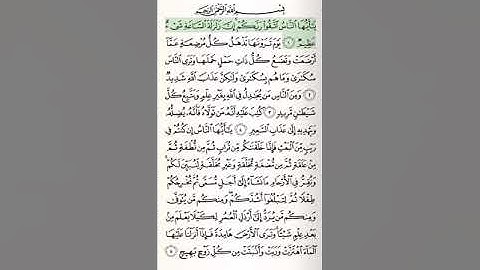 بِسْمِ ٱللَّهِ ٱلرَّحْمَٰنِ ٱلرَّحِيمِ
يَٰٓأَيُّهَا ٱلنَّاسُ ٱتَّقُوا۟ رَبَّكُمْ إِنَّ زَلْزَلَةَ ٱلسَّاعَةِ شَىْءٌ
عَظِيمٌ ١ يَوْمَ تَرَوْنَهَا تَذْهَلُ كُلُّ مُرْضِعَةٍ عَمَّآ
أَرْضَعَتْ وَتَضَعُ كُلُّ ذَاتِ حَمْلٍ حَمْلَهَا وَتَرَى ٱلنَّاسَ
سُكَٰرَىٰ وَمَا هُم بِسُكَٰرَىٰ وَلَٰكِنَّ عَذَابَ ٱللَّهِ شَدِيدٌ
٢ وَمِنَ ٱلنَّاسِ مَن يُجَٰدِلُ فِى ٱللَّهِ بِغَيْرِ عِلْمٍ وَيَتَّبِعُ كُلَّ
شَيْطَٰنٍ مَّرِيدٍ ٣ كُتِبَ عَلَيْهِ أَنَّهُۥ مَن تَوَلَّاهُ فَأَنَّهُۥ يُضِلُّهُۥ
وَيَهْدِيهِ إِلَىٰ عَذَابِ ٱلسَّعِيرِ ٤ يَٰٓأَيُّهَا ٱلنَّاسُ إِن كُنتُمْ فِى
رَيْبٍ مِّنَ ٱلْبَعْثِ فَإِنَّا خَلَقْنَٰكُم مِّن تُرَابٍ ثُمَّ مِن نُّطْفَةٍ ثُمَّ
مِنْ عَلَقَةٍ ثُمَّ مِن مُّضْغَةٍ مُّخَلَّقَةٍ وَغَيْرِ مُخَلَّقَةٍ لِّنُبَيِّنَ لَكُمْ
وَنُقِرُّ فِى ٱلْأَرْحَامِ مَا نَشَآءُ إِلَىٰٓ أَجَلٍ مُّسَمًّى ثُمَّ نُخْرِجُكُمْ
طِفْلًا ثُمَّ لِتَبْلُغُوٓا۟ أَشُدَّكُمْ وَمِنكُم مَّن يُتَوَفَّىٰ
وَمِنكُم مَّن يُرَدُّ إِلَىٰٓ أَرْذَلِ ٱلْعُمُرِ لِكَيْلَا يَعْلَمَ مِنۢ
بَعْدِ عِلْمٍ شَيْـًٔا وَتَرَى ٱلْأَرْضَ هَامِدَةً فَإِذَآ أَنزَلْنَا عَلَيْهَا
ٱلْمَآءَ ٱهْتَزَّتْ وَرَبَتْ وَأَنۢبَتَتْ مِن كُلِّ زَوْجٍۭ بَهِيجٍ ٥